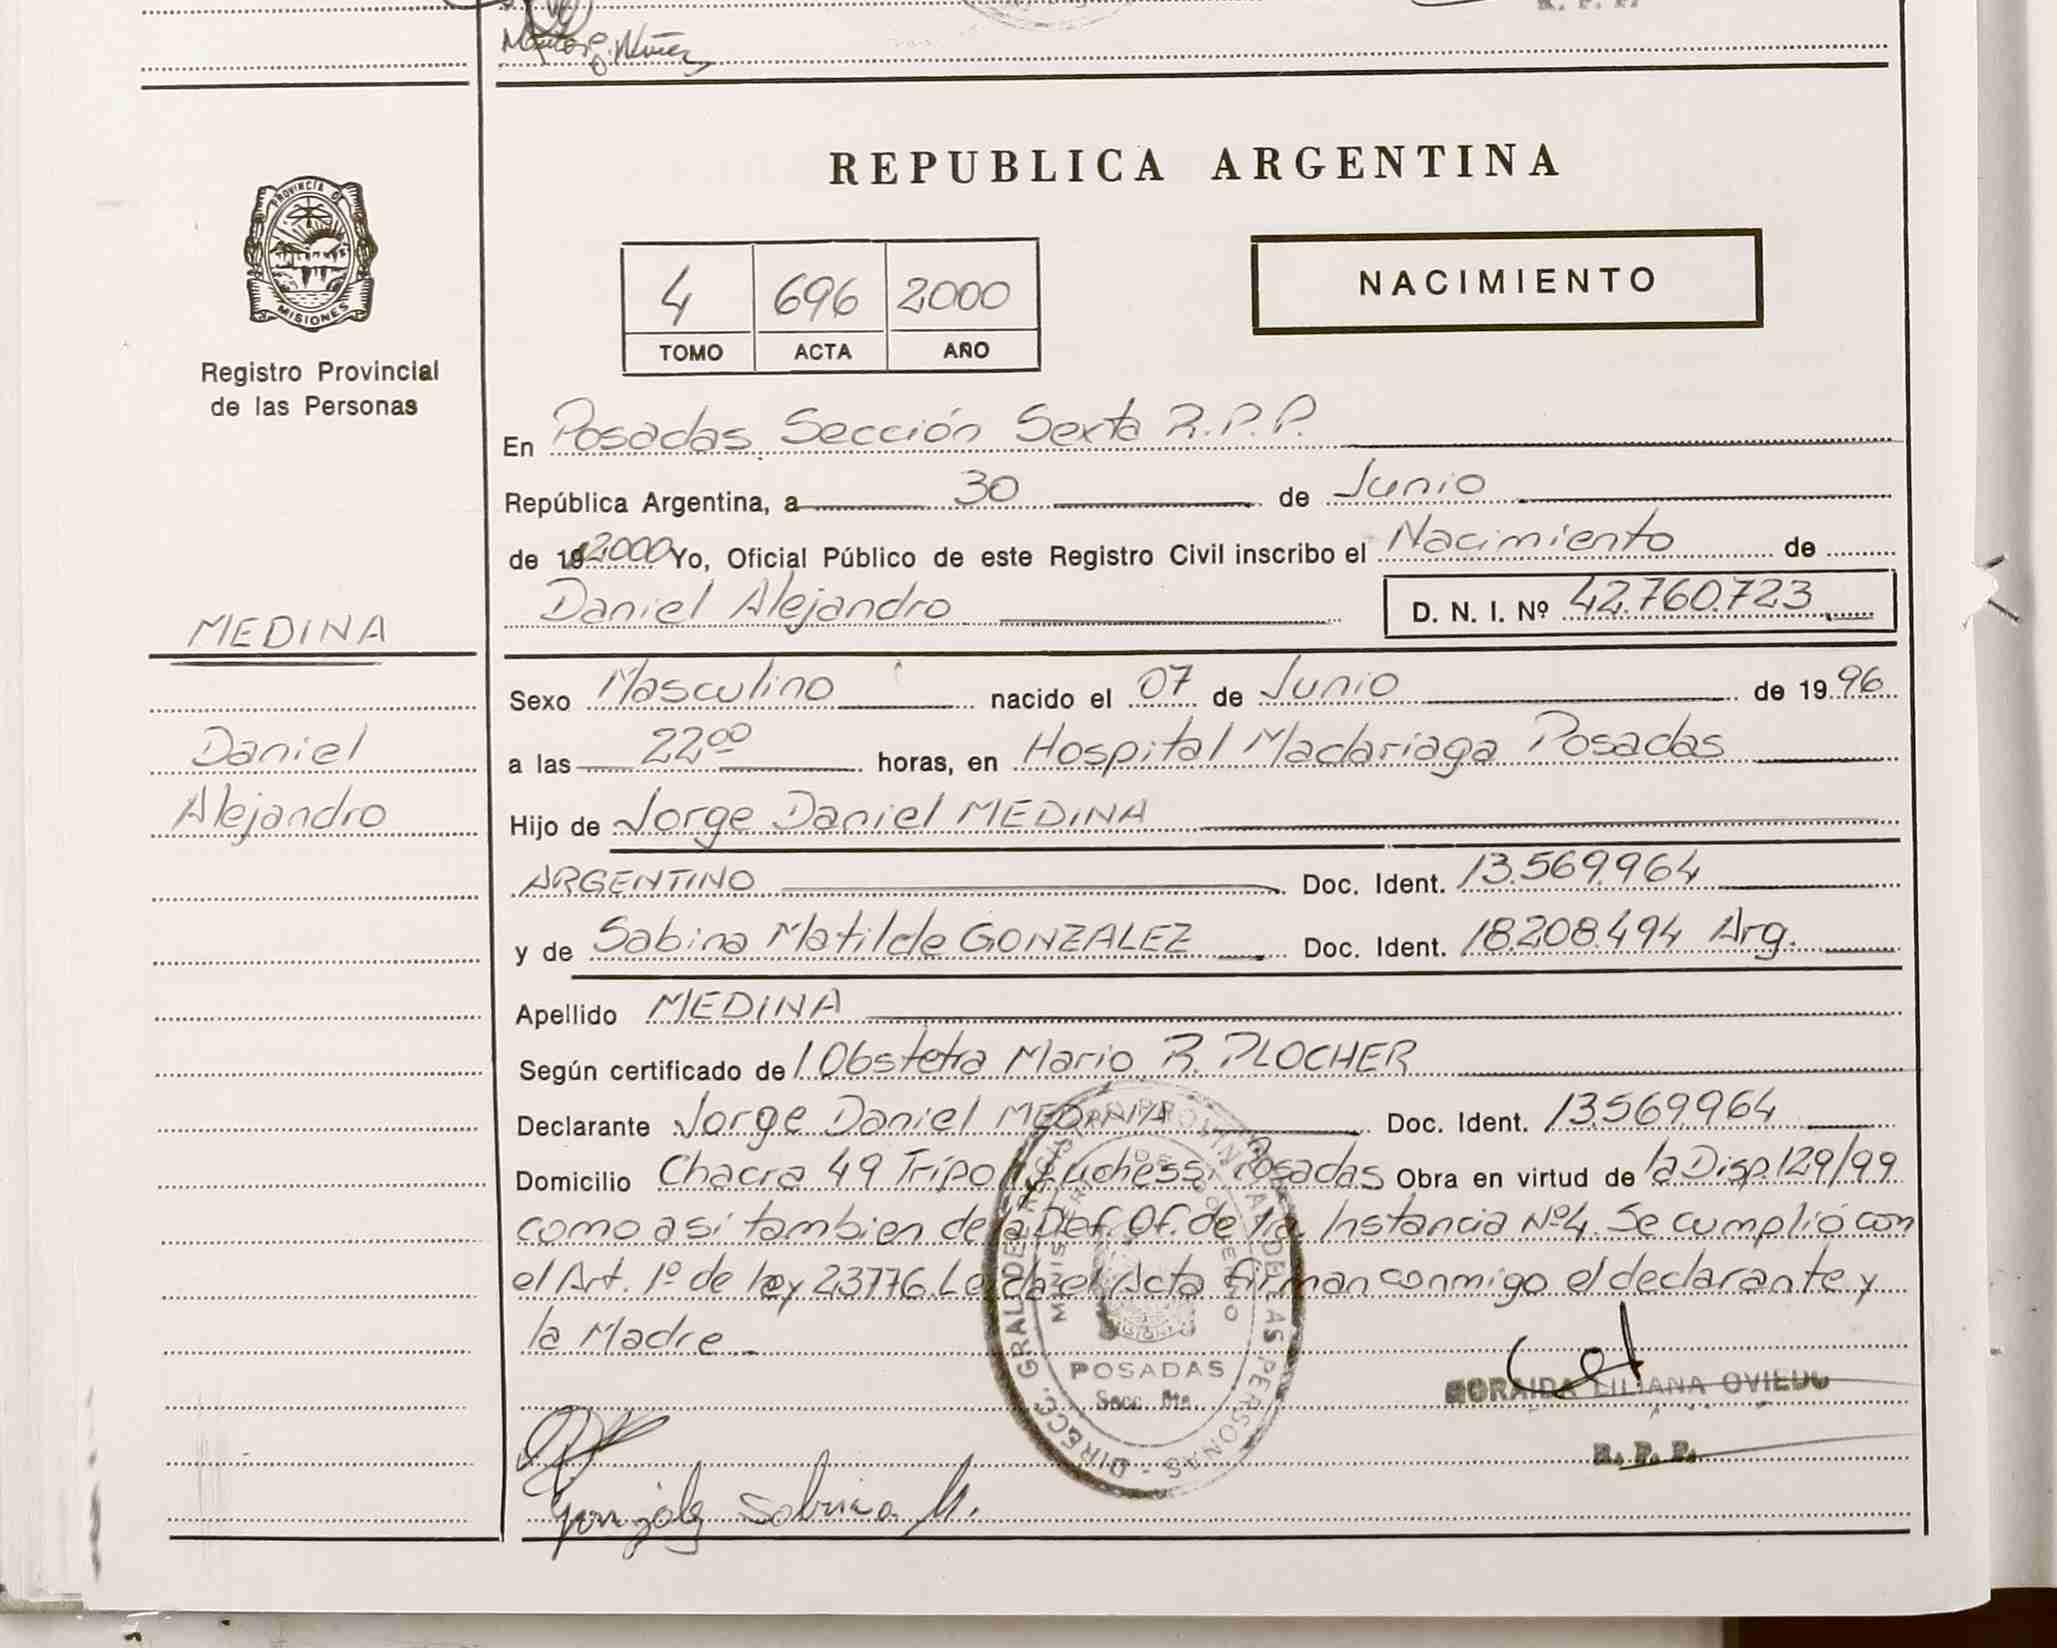 Núñez
R. P. P.
PROVINCIA DE
MISIONES
Registro Provincial
de las Personas
REPUBLICA ARGENTINA
4 696 2000
TOMO ACTA AÑO
NACIMIENTO
En Posadas Sección Sexta R.P.P.
República Argentina, a 30 de Junio
de 19 2000 Yo, Oficial Público de este Registro Civil inscribo el Nacimiento de
Daniel Alejandro D. N. I. Nº 42.760.723
MEDINA
Sexo Masculino nacido el 07 de Junio de 1996
Daniel
a las 22,00 horas, en Hospital Madariaga Posadas
Alejandro
Hijo de Jorge Daniel MEDINA
ARGENTINO Doc. Ident. 13.569.964
y de Sabina Matilde GONZALEZ Doc. Ident. 18.208.494 Arg.
Apellido MEDINA
Según certificado de l Obstetra Mario R. PLOCHER
Declarante Jorge Daniel MEDINA Doc. Ident. 13.569.964
Domicilio Chacra 49 Tripoli Luchessi Posadas Obra en virtud de la Disp. 129/99
como asi tambien de la Def. Of. de 1ra Instancia Nº4. Se cumplió con
el Art. 1º de ley 23776. Leida el Acta firman conmigo el declarante y
la Madre
DIRECC. GRAL. DEL REGISTRO PROVINCIAL DE LAS PERSONAS -
MINISTERIO DE GOBIERNO
POSADAS
Secc. 6ta.
ZORAIDA LILIANA OVIEDO
R. P. P.
Gonzalez Sabina M.